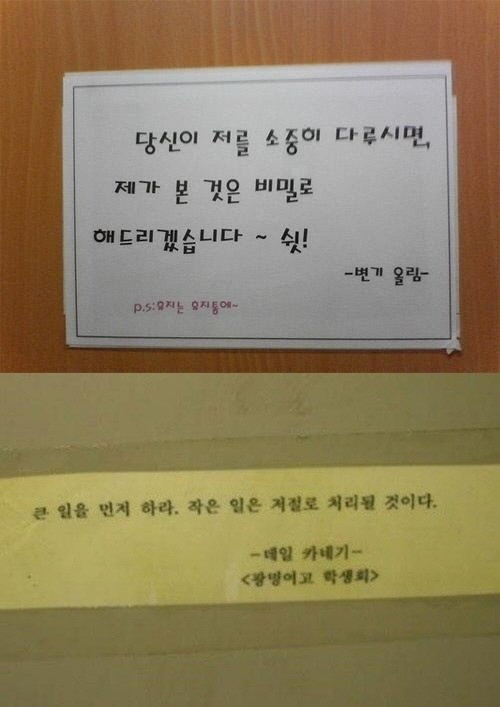 당신이 저를 소중히 다루시면,
제가 본 것은 비밀로
해드리겠습니다 ~ 쉿!
-변기 올림-
p.s:휴지는 휴지통에~
큰 일을 먼저 하라. 작은 일은 저절로 처리될 것이다.
-데일 카네기-
<광명여고 학생회>